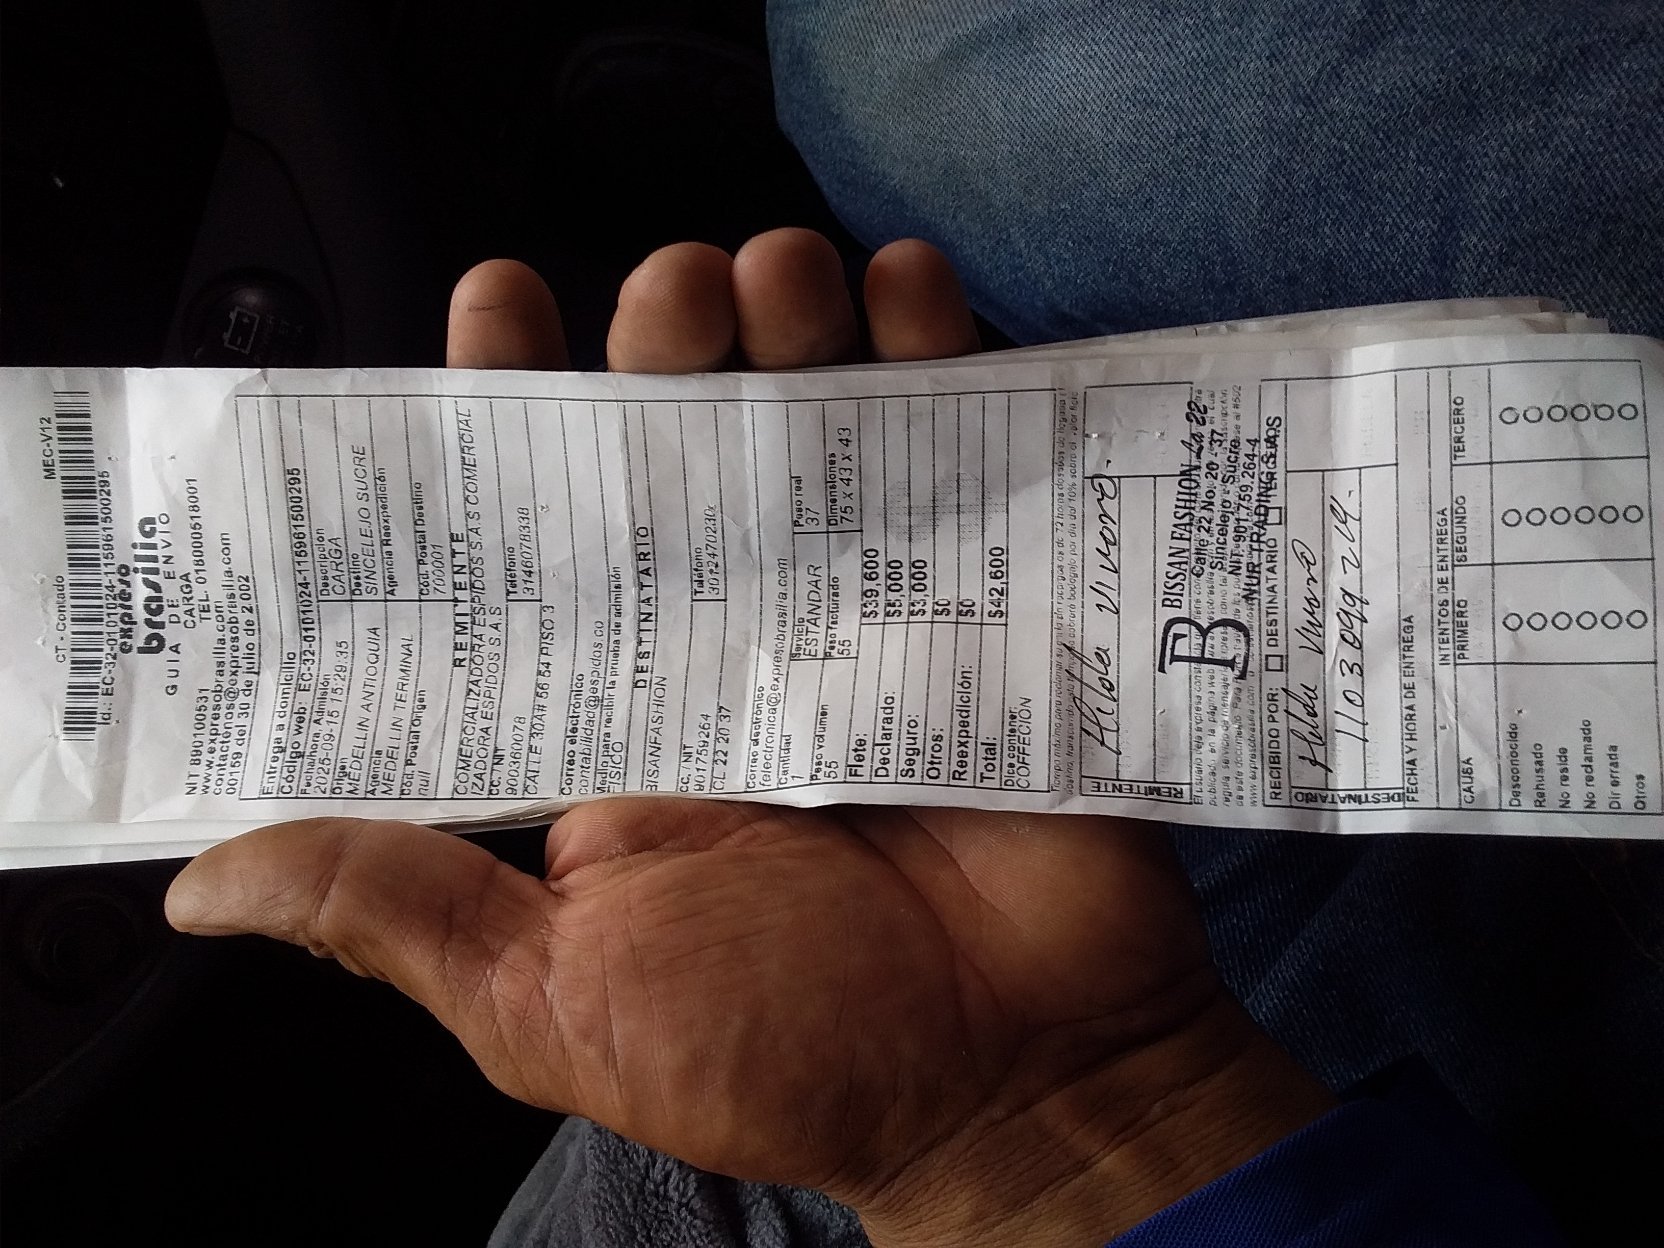 CT - Contado MEC-V12
Id.: EC-32-0101024-115961500295
expreso
brasilia
GUIA DE ENVIO
CARGA
NIT 890100531 TEL. 018000518001
www.expresobrasilia.com
contactenos@expresobrasilia.com
00159 del 30 de julio de 2.002
Entrega a domicilio
Código web: EC-32-0101024-115961500295
Fecha/hora. Admisión Descripción
2025-09-15 15:29:35 CARGA
Origen Destino
MEDELLIN ANTIOQUIA SINCELEJO SUCRE
Agencia Agencia Reexpedición
MEDELLIN TERMINAL
Cód. Postal Origen Cód. Postal Destino
null 700001
REMITENTE
COMERCIALIZADORA ESPIDOS S.A.S COMERCIAL
IZADORA ESPIDOS S.A.S
CC. / NIT Teléfono
900360078 3146078338
CALLE 30A# 56 54 PISO 3
Correo electrónico
contabilidad@espidos.co
Medio para recibir la prueba de admisión
FISICO
DESTINATARIO
BISANFASHION
CC. / NIT Teléfono
901759264 3012470230
CL 22 20 37
Correo electrónico
felectronica@expresobrasilia.com
Cantidad Servicio Peso real
1 ESTANDAR 37
Peso volumen Peso facturado Dimensiones
55 55 75 x 43 x 43
Flete: $39,600
Declarado: $5,000
Seguro: $3,000
Otros: $0
Reexpedición: $0
Total: $42,600
Dice contener:
COFFECION
REMITENTE
BISSAN FASHION La 22
Calle 22 No. 20 - 37
Sincelejo - Sucre
NIT. 901.759.264-4
NUR TRADING S.A.S
RECIBIDO POR: DESTINATARIO TERCEROS
DESTINATARIO
FECHA Y HORA DE ENTREGA
INTENTOS DE ENTREGA
CAUSA PRIMERO SEGUNDO TERCERO
Desconocido
Rehusado
No reside
No reclamado
Dir errada
Otros